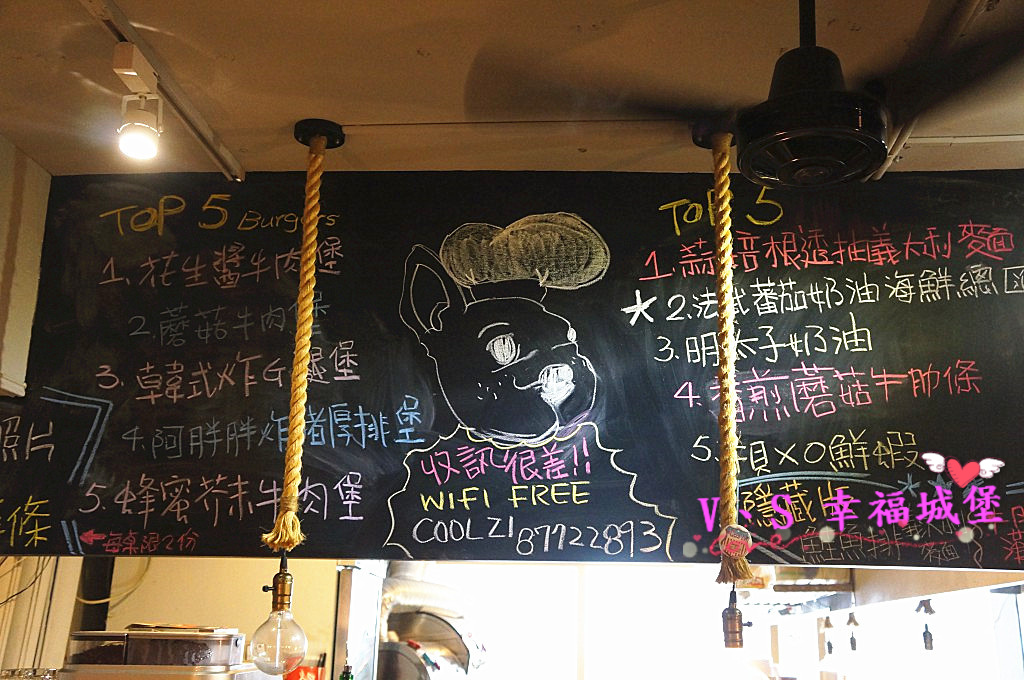 TOP 5 Burgers
1. 花生醬牛肉堡
2. 蘑菇牛肉堡
3. 韓式炸G腿堡
4. 阿胖胖炸豬厚排堡
5. 蜂蜜芥末牛肉堡
每桌限2份
照片
條
收訊很差!!
WIFI FREE
COOLZI 87722893
TOP 5
1. 蒜 培根透抽義大利麵
★ 2. 法式蕃茄奶油海鮮總匯
3. 明太子奶油
4. 香煎蘑菇牛肋條
5. 干貝XO鮮蝦
隱藏版
鮭魚排義大利
麵
V♥S 幸福城堡